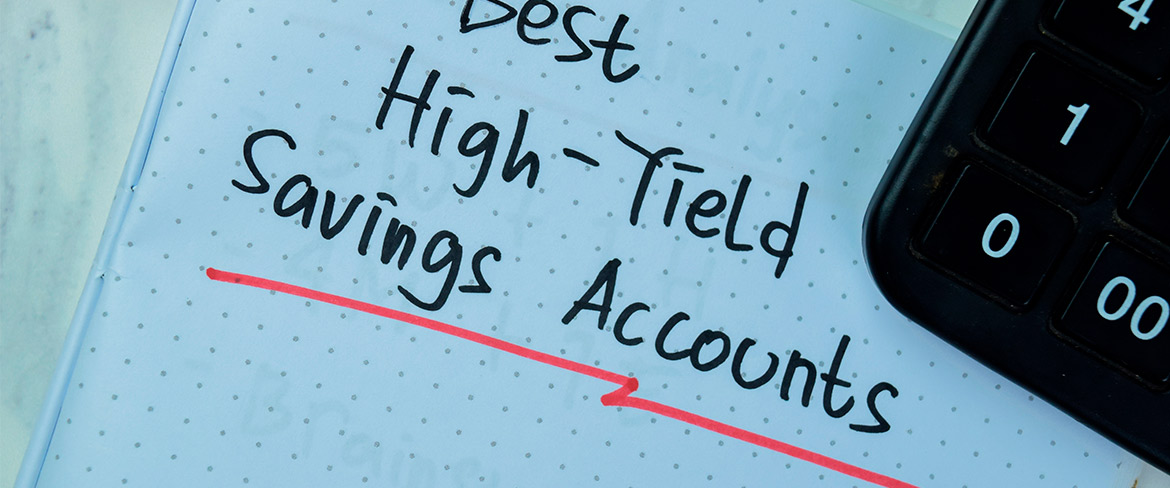 Best
High-Yield
Savings Accounts
4
1
0
00